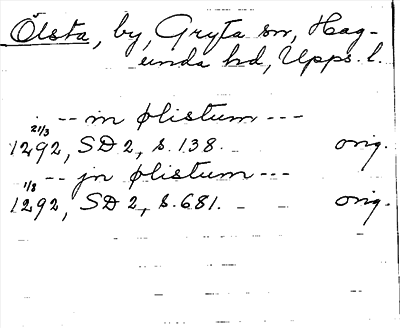 Ölsta, by, Gryta sn, Hag-
unda hd, Upps. l.
-- in ølistum ---
21/3
1292, SD 2, s. 138. orig.
-- jn ølistum ---
1/8
1292, SD 2, s. 681. orig.